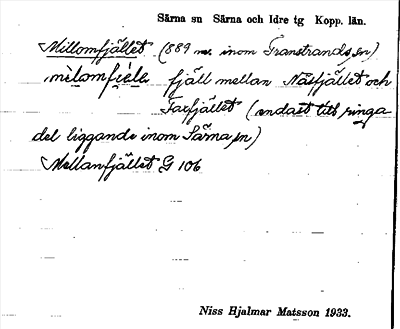 Särna sn Särna och Idre tg Kopp. län.
Millomfjället (889 m. inom Transtrands sn)
mìlomfiele fjäll mellan Näsfjället och
Faxfjället (endast till ringa
del liggande inom Särna sn)
Mellanfjället G 106
Niss Hjalmar Matsson 1933.